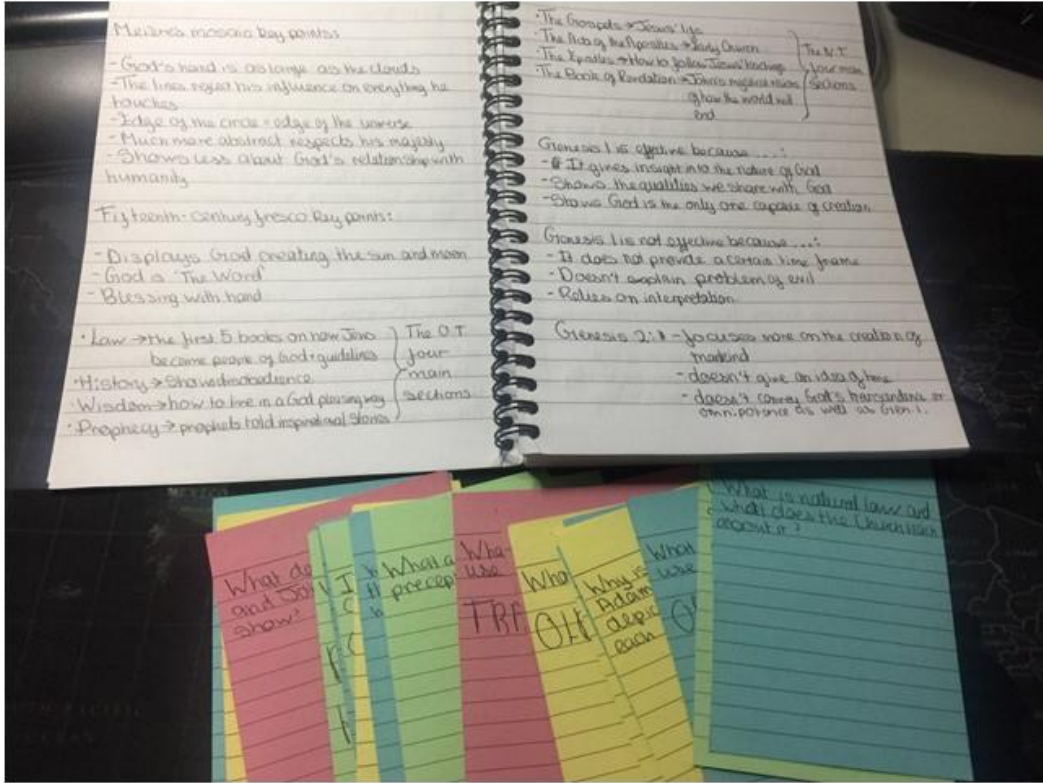 Meière's mosaic key points:
- God's hand is as large as the clouds
- The lines reflect his influence on everything he
touches
- Edge of the circle = edge of the universe
- Much more abstract respects his majesty
- Shows less about God's relationship with
humanity
Fifteenth-century fresco key points:
- Displays God creating the sun and moon
- God is 'The Word'
- Blessing with hand
• Law → the first 5 books on how Jews
become people of God + guidelines
• History → Shows disobedience
• Wisdom → how to live in a God pleasing way
• Prophecy → prophets told inspirational stories
The O.T.
four
main
sections
• The Gospels → Jesus' life
• The Acts of the Apostles → Early Church
• The Epistles → How to follow Jesus' teachings
• The Book of Revelation → John's mystical visions
of how the world will
end
The N.T.
four main
sections
Genesis 1 is effective because ...:
- It gives insight into the nature of God
- Shows the qualities we share with God
- Shows God is the only one capable of creation
Genesis 1 is not effective because ...:
- It does not provide a certain time frame
- Doesn't explain problem of evil
- Relies on interpretation
Genesis 2: - focuses more on the creation of
mankind
- doesn't give an idea of time
- doesn't convey God's transcendence or
omnipotence as well as Gen 1.
What do
and Jo
show?
What a
precep
Wha
use
Wha
Why is
Adam
depic
each
What
use
What is natural law and
what does the Church teach
about it?